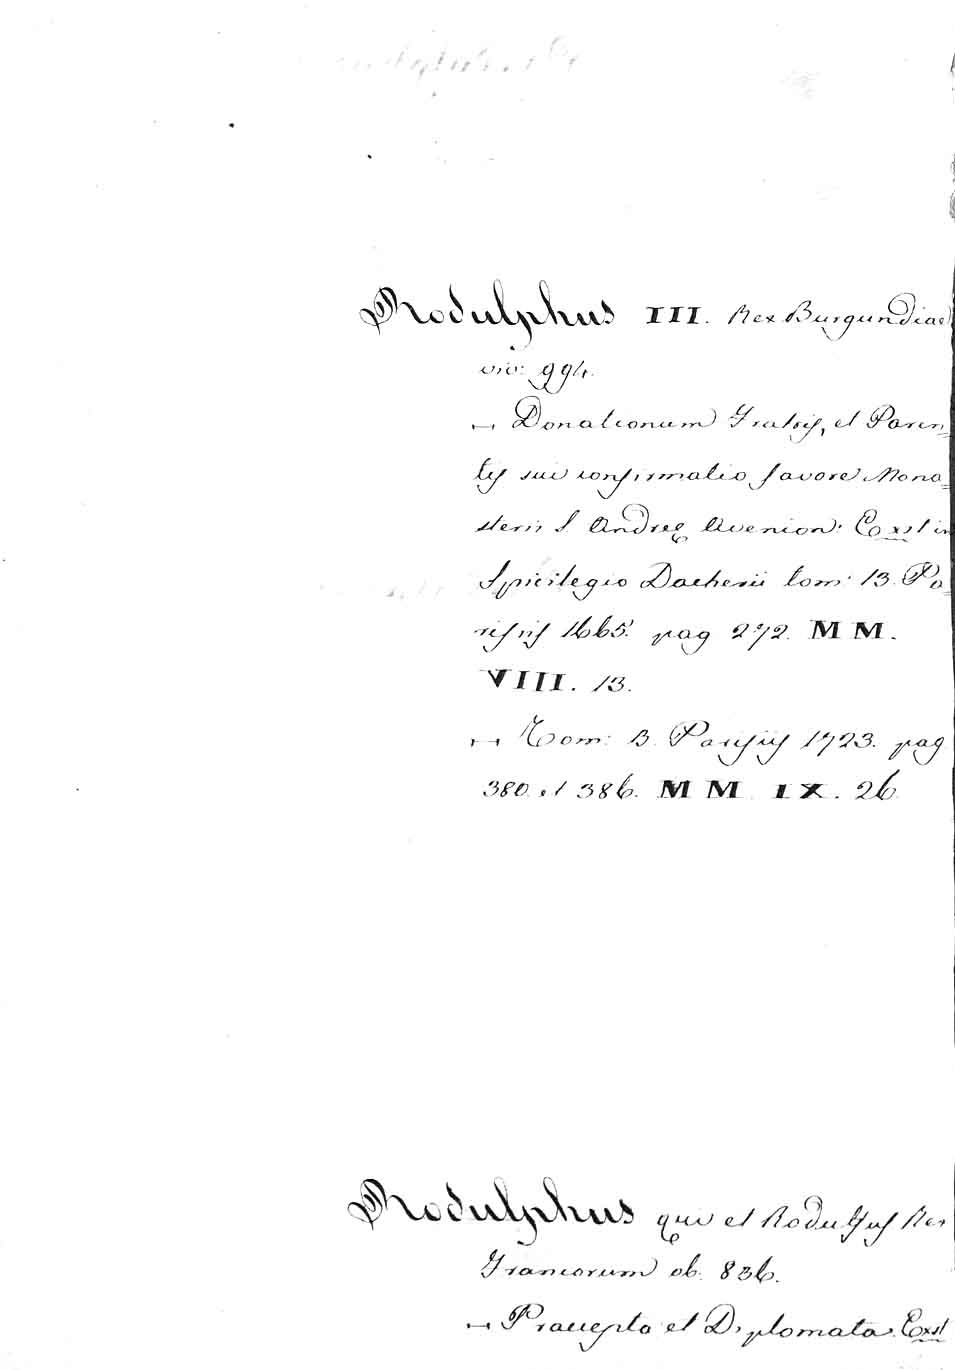 Rodulphus III. Rex Burgundiae
viv: 994.
— Donationum Fratris, et Paren=
tis sui confirmatio favore Mona=
sterii S. Andreę Avenion: Exst in
Spicilegio Dacherii tom: 13. Pa=
risiis 1665. pag 272. MM.
VIII. 13.
— Tom: 3. Parisiis 1723. pag
380. et 386. MM IX. 26.
Rodulphus qui et Radulfus Rex
Francorum ob. 836.
— Praecepta et Diplomata. Exst